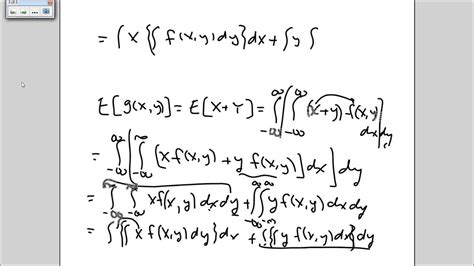 = ∫ x { ∫ f(x,y) dy } dx + ∫ y ∫
E[g(x,y)] = E[X+Y] = ∫_{-∞}^{∞} [ ∫_{-∞}^{∞} (x+y) f(x,y) dx ] dy
= ∫_{-∞}^{∞} [ ∫_{-∞}^{∞} (x f(x,y) + y f(x,y) ) ] dx ] dy
= ∫_{-∞}^{∞} ∫_{-∞}^{∞} x f(x,y) dx dy + ∫_{-∞}^{∞} ∫_{-∞}^{∞} y f(x,y) dx dy
= ∫ { ∫ x f(x,y) dy } dx + ∫ { ∫ y f(x,y) dx } dy